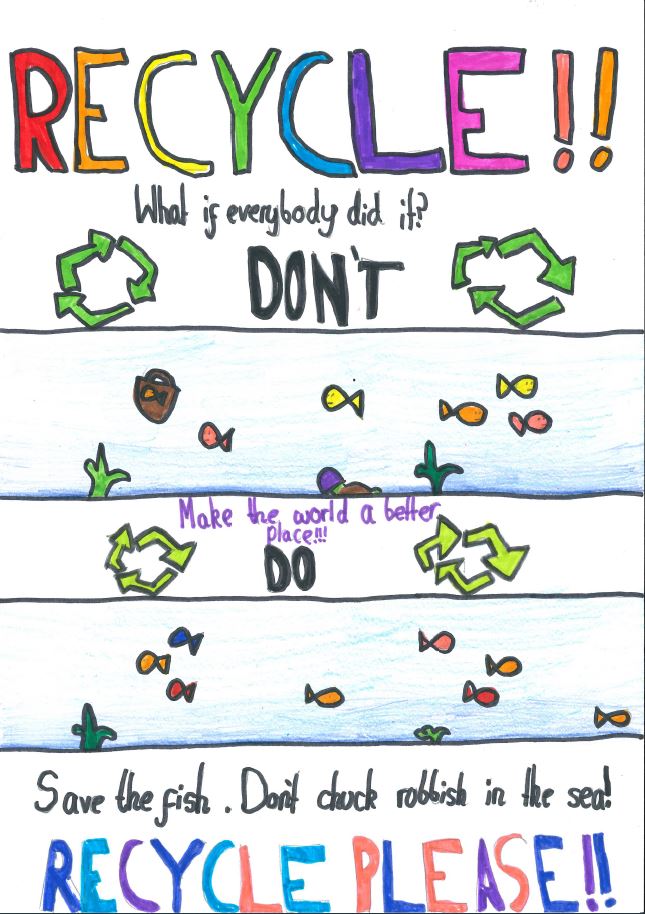 RECYCLE!!
What if everybody did it?
DON'T
Make the world a better
place!!!
DO
Save the fish. Don't chuck robbish in the sea!
RECYCLE PLEASE!!